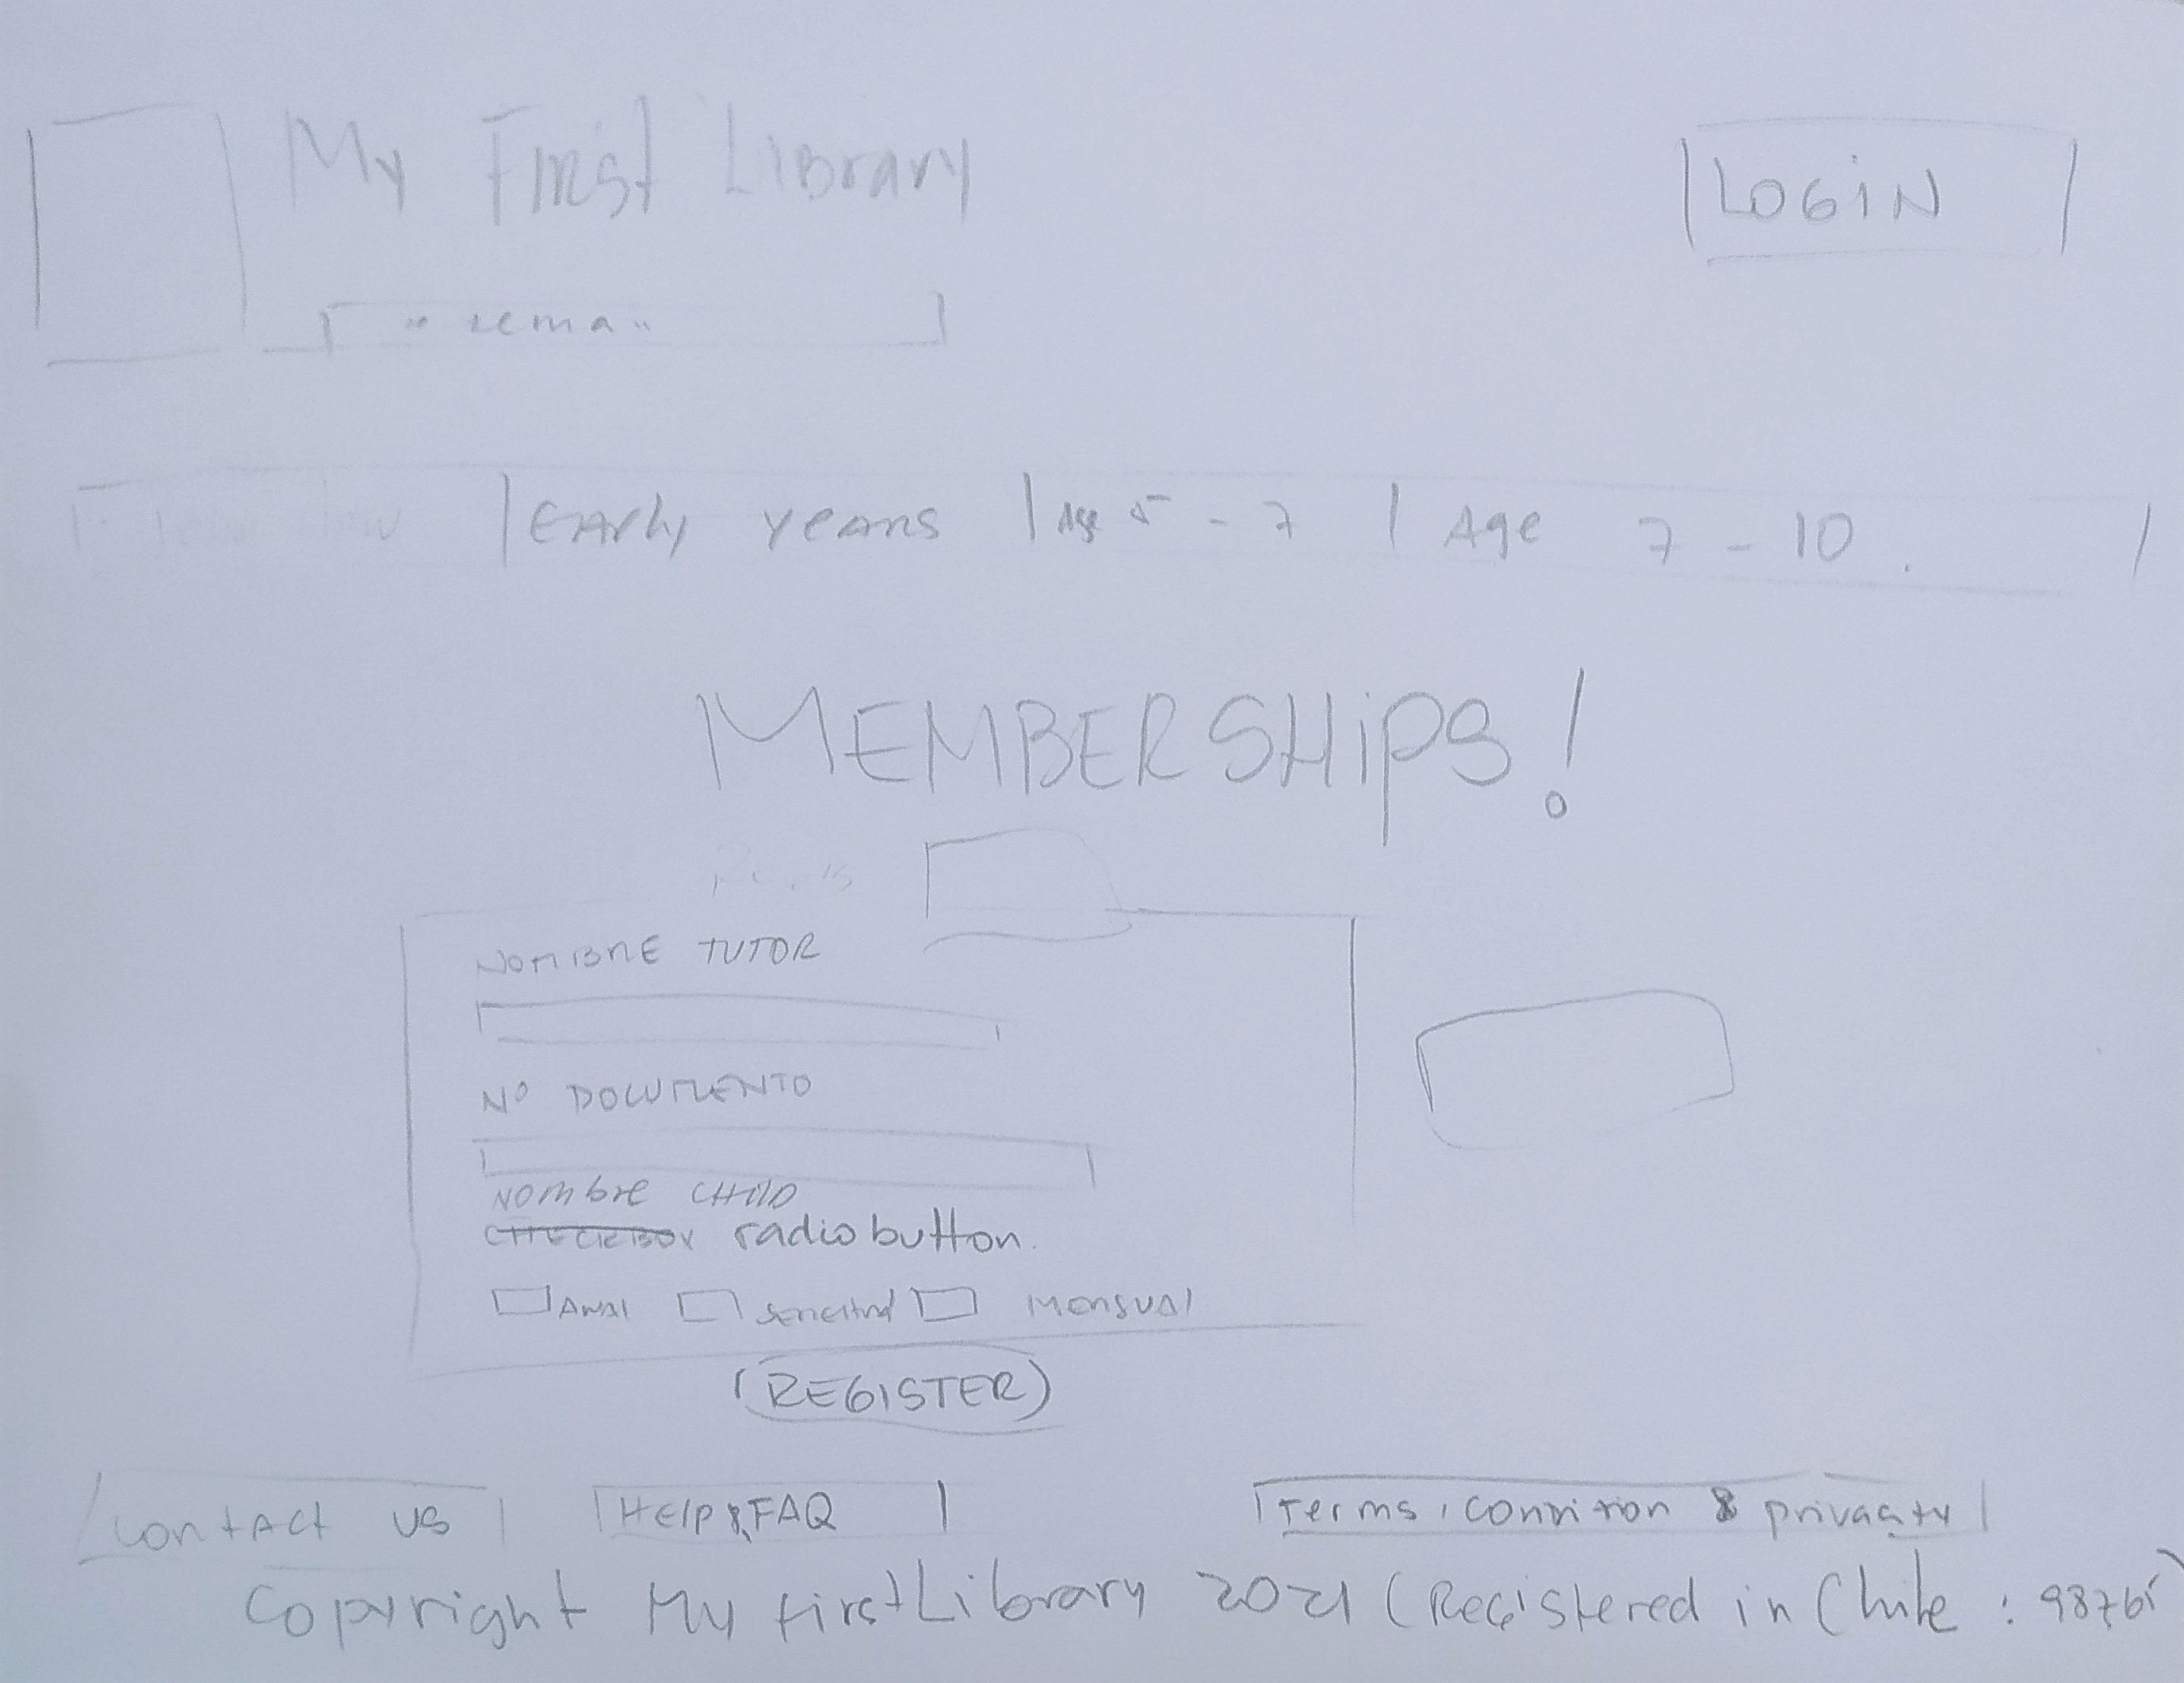 My First Library
LOGIN
Early years | Age 5 - 7 | Age 7 - 10.
MEMBERSHiPS!
NOMBRE TUTOR
Nº DOCUMENTO
NOMbre CHILD
CHECKBOX radio button.
MENSUAL
(REGISTER)
CONTACT US
HElp & FAQ
Terms, Condition & privacity
Copyright My firstLibrary 2021 (Registered in Chile : 9876